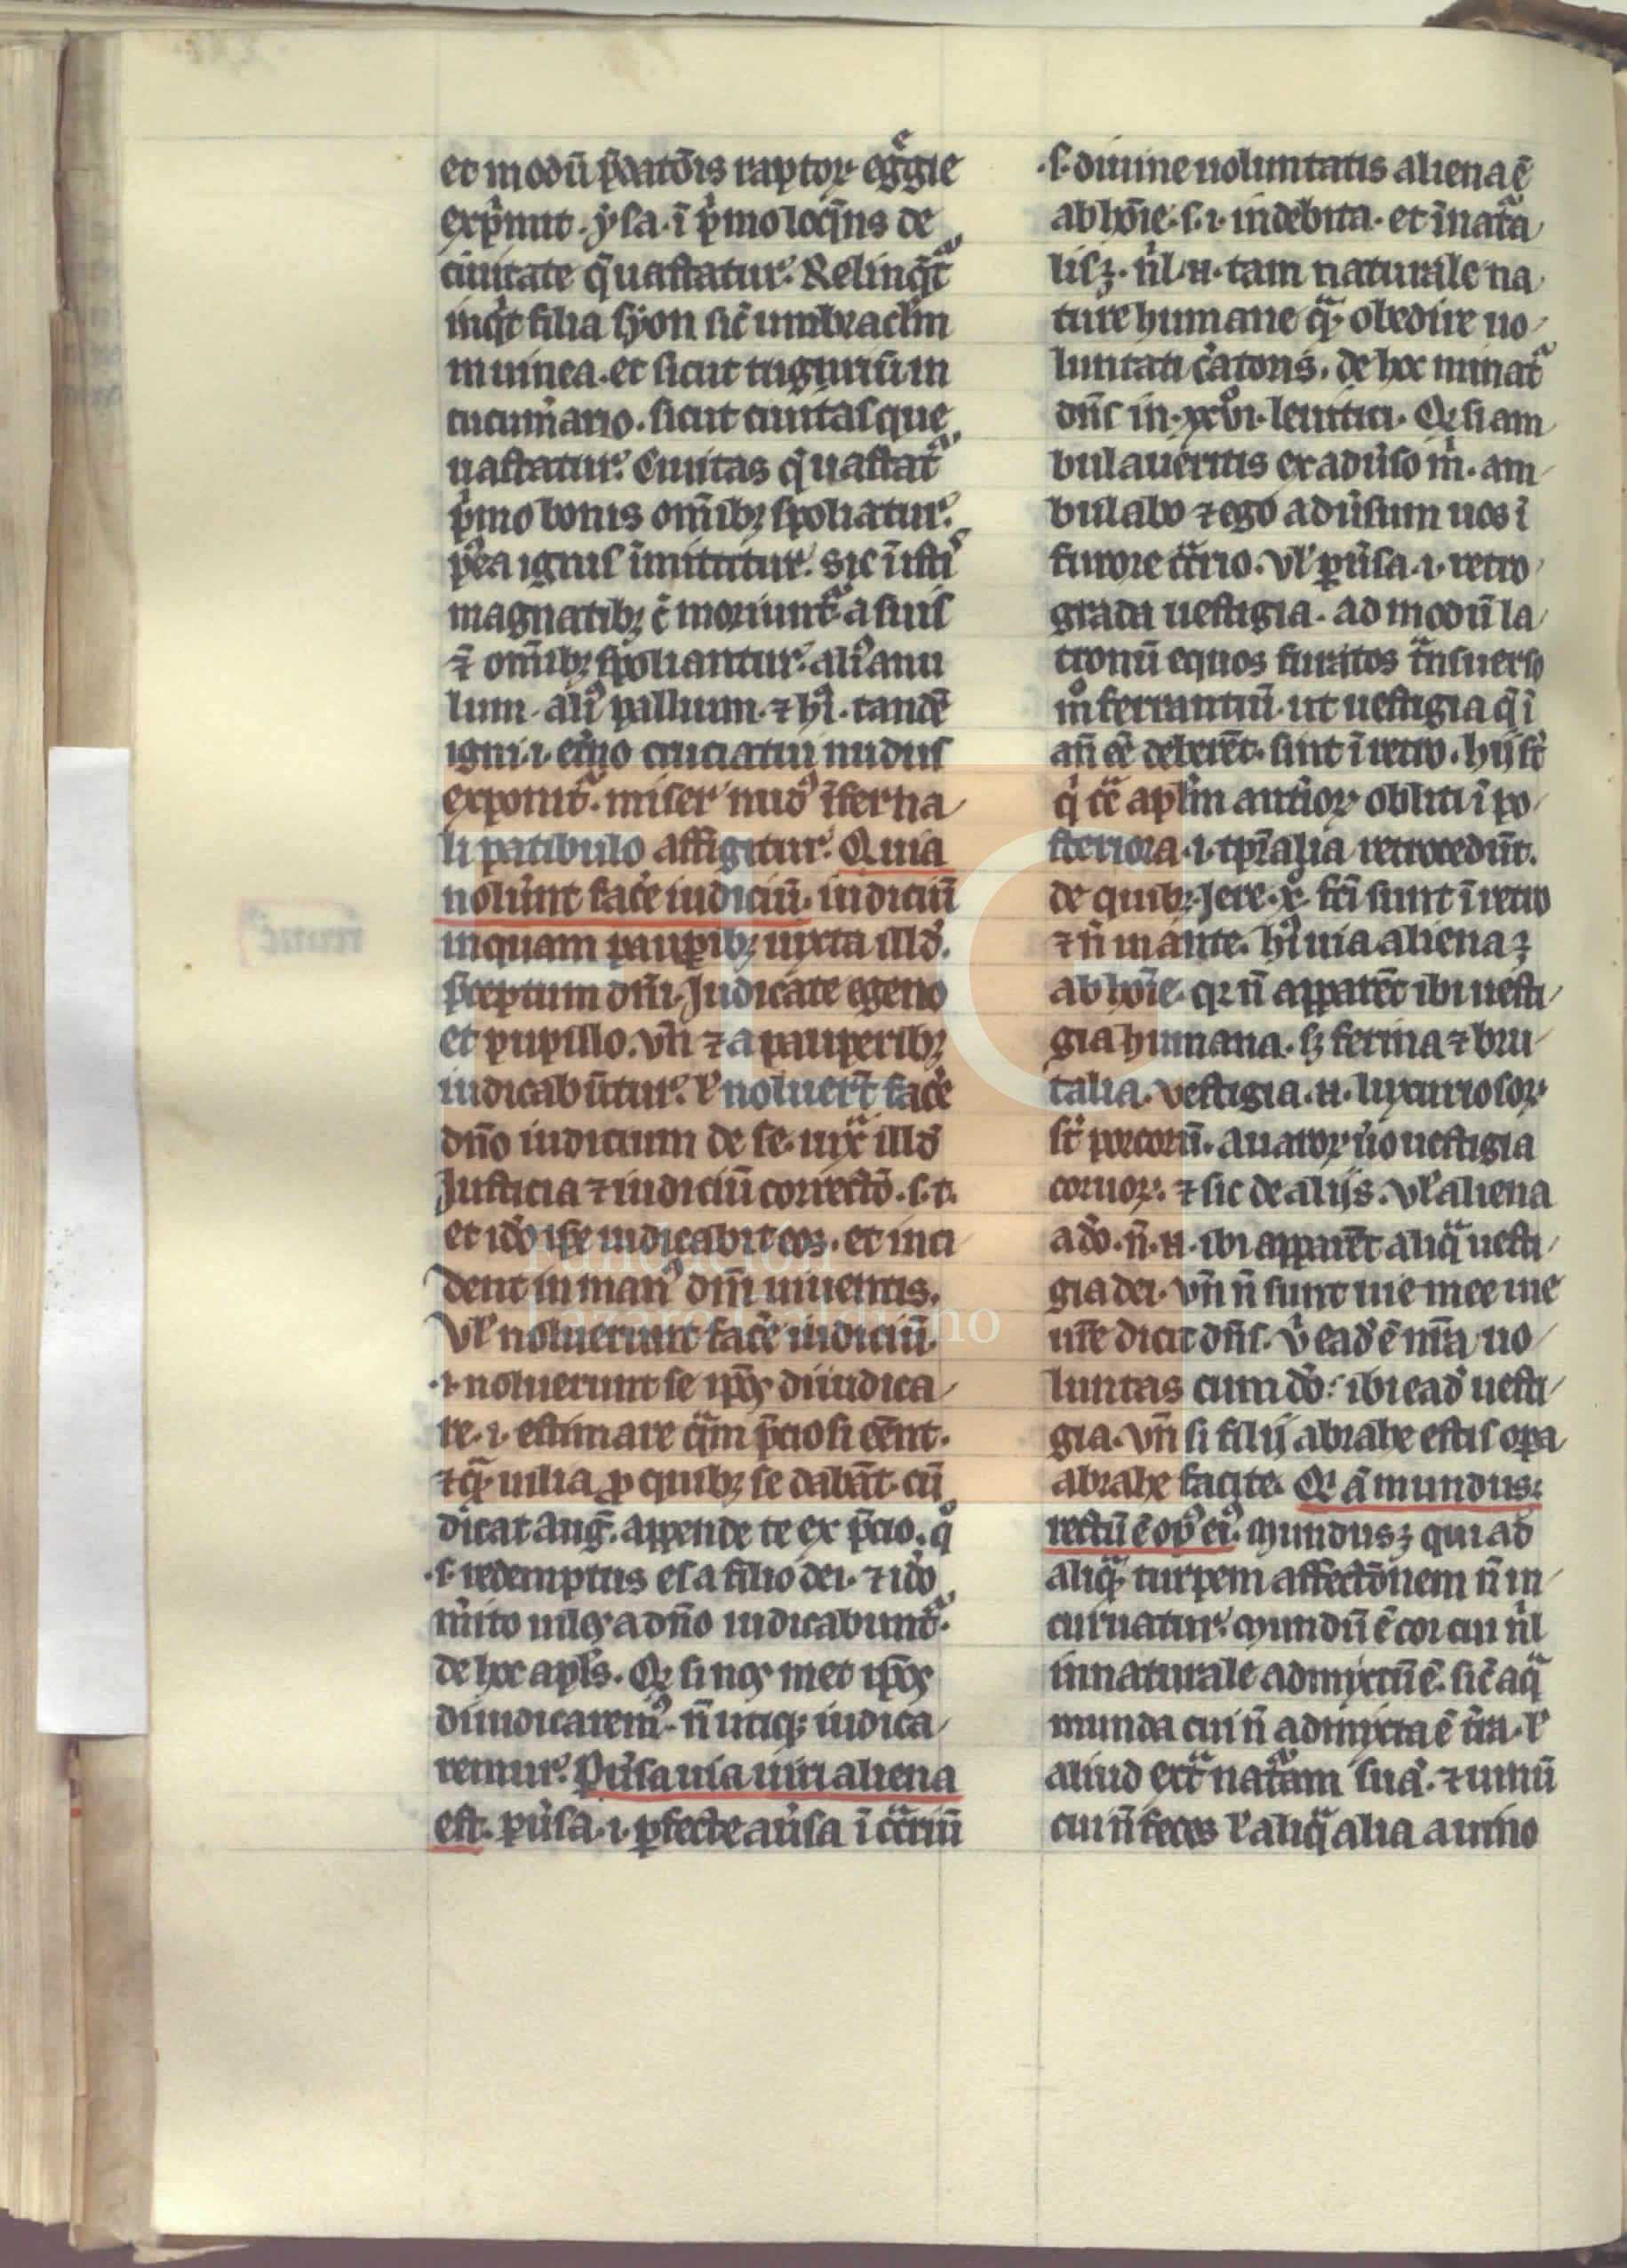 et modū p̄dat̄ois raptoꝝ eg̃gie
exp̃mit. ysa. ī p̃mo loq̄ns de
ciuitate q̃ uastatur. Relinq̃t᷑
inq̃t filia syon sic̃ umbraclm̃
in uinea. et sicut tuguriū in
cucum̃ario. sicut ciuitas que
uastatur. Ciuitas q̃ uastat᷑
p̃mo bonis om̃ibꝫ spoliatur.
p̃ea ignis īmittitur. sic isti
magnatibꝫ c̃ moriunt᷑ a suis
⁊ om̃ibꝫ spoliantur. aliꝰ anu
lum. aliꝰ pallium. ⁊ hꝰi. tandē
igni. i. et̃no cruciatui nudus
exponit᷑. miser nudꝰ īferna
li patibulo affigitur. Quia
nolũnt fac̃e iudiciū. iudiciū
inquam paup̱ibꝫ iuxta illđ.
p̄ceptum dn̄i. Judicate egeno
et pupillo. vn̄ ⁊ a pauperibꝫ
iudicabūtur. ł noluer̄t fac̃e
dn̄o iudicium de se. iux̃ illđ
Justicia ⁊ iudiciū correctō. s. t.
et iđo ip̃e iudicabit eos. et inci
dent in manꝰ dn̄i uiuentis.
Vł noluerunt fac̃e iudiciū.
.i. noluerunt se ip̃os diiudica
re. i. estimare q̃m p̄ciosi eēnt.
⁊ q̃ uilia ꝓ quibꝫ se dabāt. cū
dicat aug̃. appende te ex p̄cio. qͦ
.s. redemptus es a filio dei. ⁊ iđo
m̃ito uilꝰ a dn̄o iudicabunt᷑.
de hoc apl̃s. Qꝫ si nos met ip̃os
diiudicaremꝰ. n̄ utiqꝫ iudica
remur. Pũsa uia uiri aliena
est. pũsa. i. ꝑfecte aũsa ī c̃triū
.s. diuine uoluntatis aliena ē
ab hoīe. s. i. indebita. et inat̃a
lisꝫ. nl̃. n. tam naturale na
ture humane q̃ obedire uo
luntati c̃atoris. de hoc minat᷑
dn̄s in. xxvi. leuitici. Qꝫ si am
bulaueritis ex adũso m̃. am
bulabo ⁊ ego adũsum uos ī
furore c̃trio. Vł pũsa. i. retro
grada uestigia. ad modū la
tronū equos furatos t̃nsuerso
mͦ ferrantiū. ut uestigia q̃ ī
an̄ eē deberēt. sint ī retro. hij st̃
q̃ c̃ apl̃m anťioꝝ obliti ī po
steriora. i. tp̄alia retrocedūt.
de quibꝫ. Jere. x. fc̃i sunt ī retro
⁊ n̄ in ante. hꝰ uia aliena ꝫ
ab hoīe. qꝛ n̄ apparēt ibi uesti
gia humana. sꝫ ferina ⁊ bru
talia. vestigia. n. luxuriosoꝝ
st̃ porcorū. auaroꝝ ũo uestigia
coruoꝝ. ⁊ sic de alijs. vł aliena
a đo. n̄. n. ibi apparēt aliq̃ uesti
gia dei. vn̄ n̄ sunt uie mee uie
ur̄e dicit dn̄s. v̓ eađ ē nr̄a uo
luntas cum đo: ibi eađ uesti
gia. vn̄ si filij abrahe estis opa
abrahe facite. Qꝫ ā mundus:
rectū ē opꝰ eiꝰ. Mundusꝫ qui ad
aliq̃ turpem affectōnem n̄ in
curuatur. Mundū ē cor cui nl̃
innaturale admixtū ē. sic̃ aq̃
munda cui n̄ admixta ē t̃ra. ł
aliud ext̃ nat̃am suā. ⁊ uinū
cui n̄ feces ł aliq̃ alia a uino